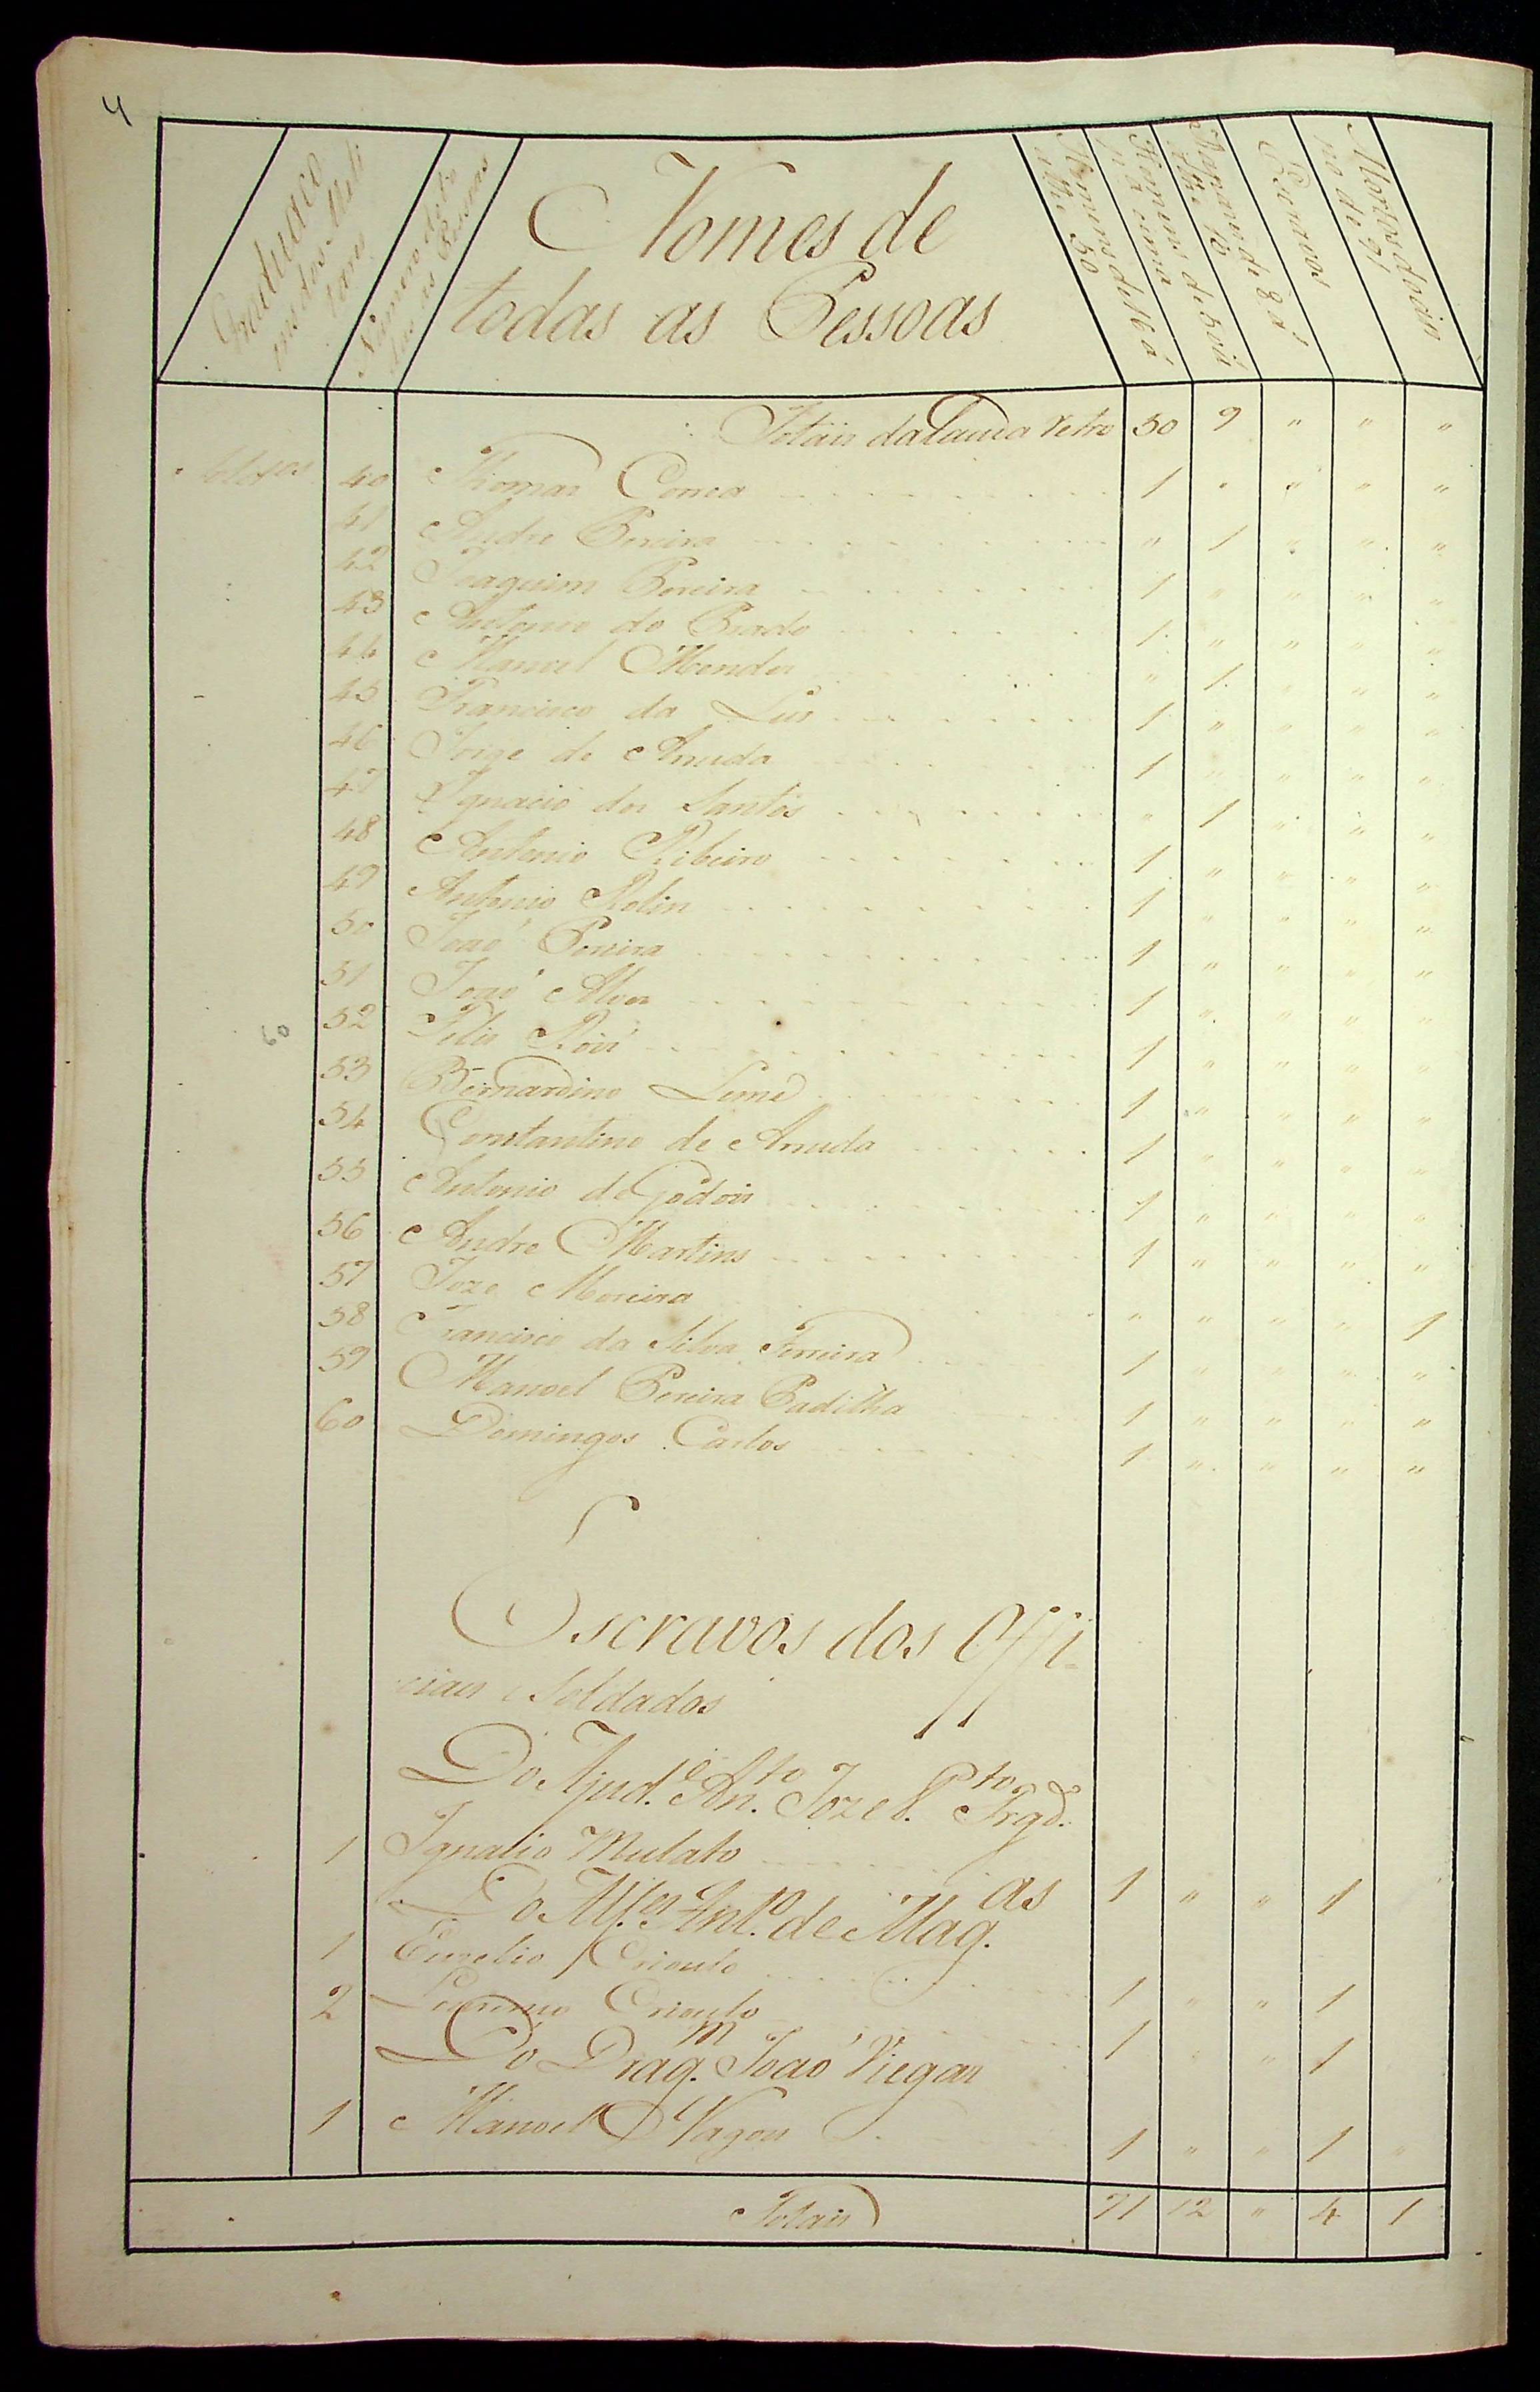 4
Graduaço
ens dos Mili
tares
Numero de to
das as Pessoas
Nomes de
todas as Pessoas
Homens de 16 á
athe 50
Homens de 50 á
p.ª cima
Rapazes de 8 á
athe 16
Escravos
Mortos do an
no de 91
Totais da Lauda Retro 50 9 " " "
Sold.os 40 Thomas Correa 1 " " " "
41 Andre Pereira " 1 " " "
42 Joaquim Pereira 1 " " " "
43 Antonio do Prado 1 " " " "
44 Manoel Mendes " 1 " " "
45 Francisco da Lus 1 " " " "
46 Jorge de Arruda 1 " " " "
47 Ignacio dos Santos " 1 " " "
48 Antonio Ribeiro 1 " " " "
49 Antonio Rolin 1 " " " "
50 Joaõ Pereira 1 " " " "
51 Joaõ Alves 1 " " " "
52 Felis 1 " " " "
60
53 Bernardino Leme 1 " " " "
54 Constantino de Arruda 1 " " " "
55 Antonio de Godois 1 " " " "
56 Andre Martins 1 " " " "
57 Joze Moreira " " " " 1
58 Francisco da Silva Ferreira 1 " " " "
59 Manoel Pereira Padilha 1 " " " "
60 Domingos Carlos 1 " " " "
Escravos dos Offi-
ciais e Soldados
Do Ajud.e An.to Joze
1 Ignacio Mulato 1 " " 1
Do Alf.es Ant.o de Mag.as
1 Crioulo 1 " " 1
2 Crioulo 1 " " 1
Do Drag.m Joaõ Viegas
1 Manoel 1 " " 1 "
Totais 71 12 " 4 1